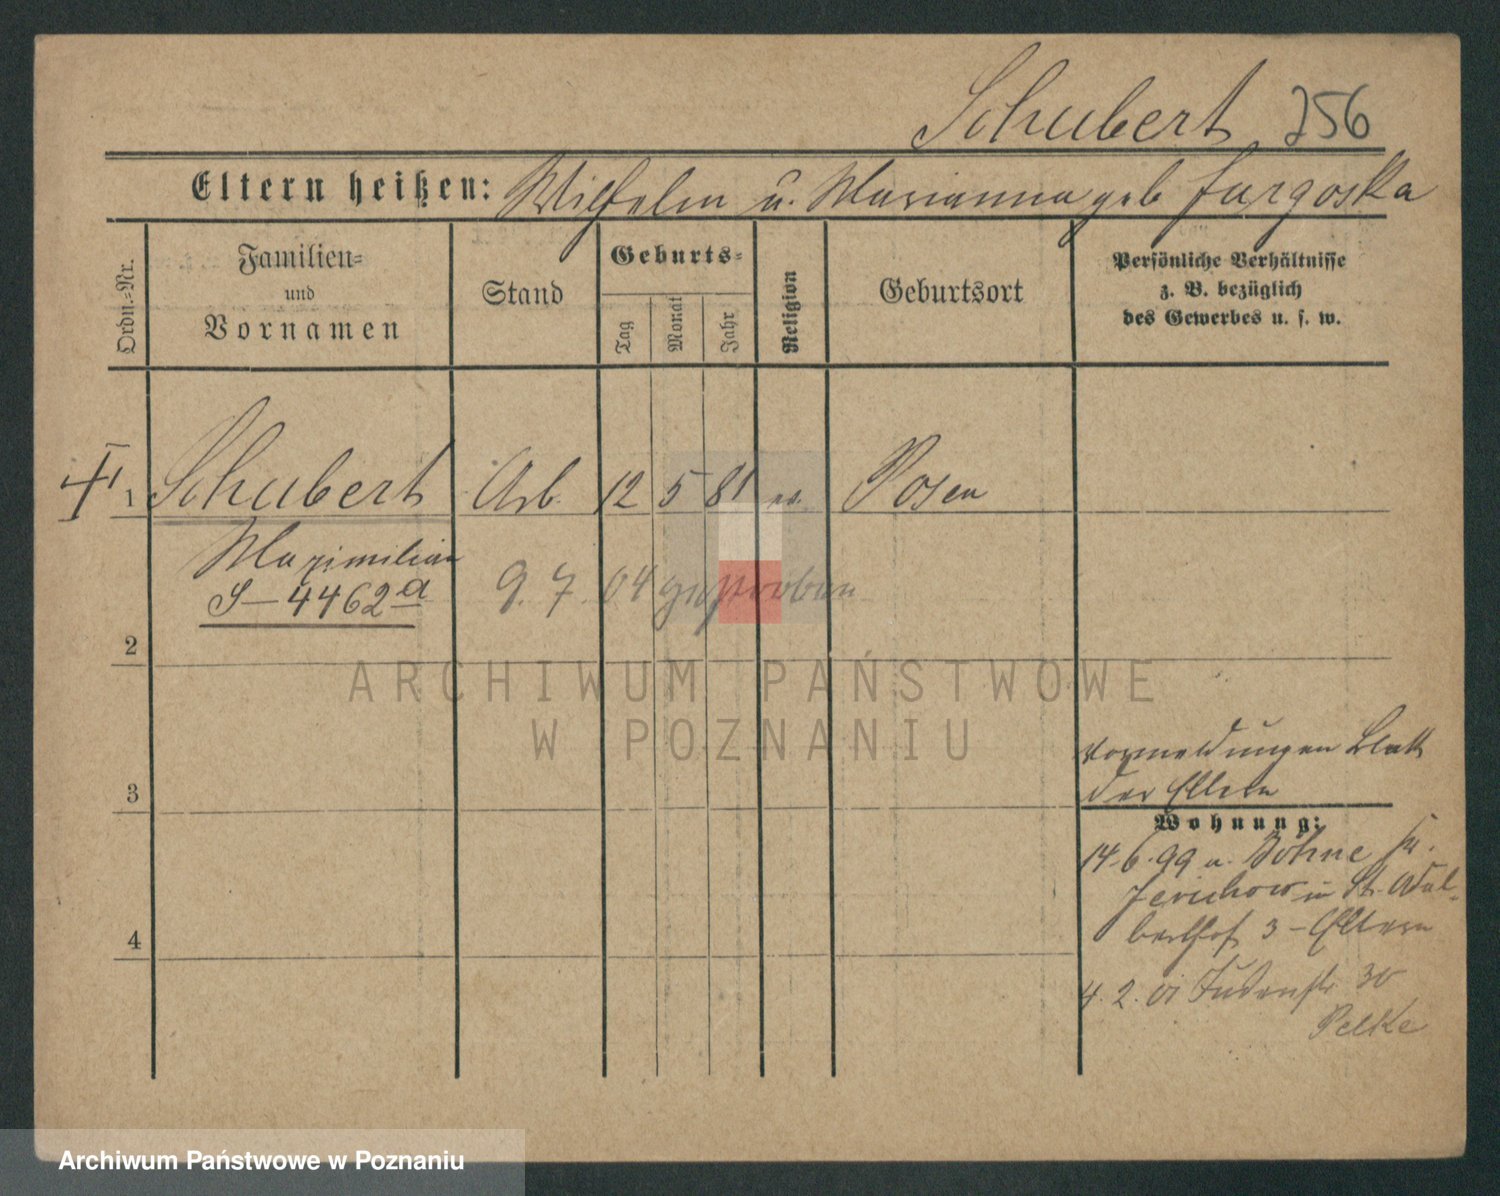 Schubert 256
Eltern heißen: Wilhelm u. Marianna geb Jurgoska
Ordn.=Nr.
Familien=
und
Vornamen
Stand
Geburts=
Tag
Monat
Jahr
Religion
Geburtsort
Persönliche Verhältnisse
z. B. bezüglich
des Gewerbes u. s. w.
1 Schubert Arb. 12 5 81 ev. Posen
Maximilian
S–4462a
9. 7. 04 gestorben
2
3
4
Vormeldungen Blatt
der Eltern
Wohnung:
14.6.99 a. Böhne
Jerichow in St. Adal-
berthof 3 – Eltern
4. 2. 01 Judenstr 30
Pelke
ARCHIWUM PAŃSTWOWE
W POZNANIU
Archiwum Państwowe w Poznaniu